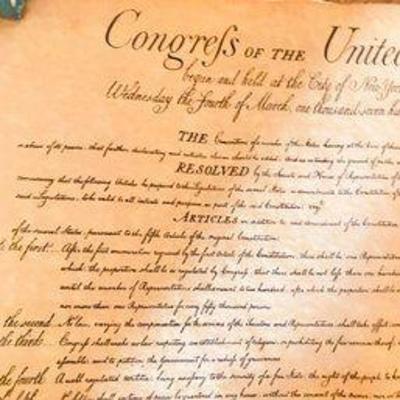 Congreſs OF THE United
begun and held at the City of New York
Wednesday the Fourth of March, one thousand seven hun
THE Conventions of a number of the States having at the time of their
abuse of its powers, that further declaratory and restrictive clauses should be added: And as extending the ground of
RESOLVED by the Senate and House of Representatives of the
concurring, that the following Articles be proposed to the Legislatures of the several States, as amendments to the Constitution of the
said Legislatures, to be valid to all intents and purposes, as part of the said Constitution; viz.
ARTICLES in addition to, and Amendment of the Constitution
of the several States, pursuant to the fifth Article of the original Constitution.
the first... After the first enumeration required by the first Article of the Constitution, there shall be one Representative
which, the proportion shall be so regulated by Congreſs, that there shall not be leſs than one hundred
until the number of Representatives shall amount to two hundred, after which the proportion shall be
nor more than one Representative for every fifty thousand persons.
the second... No law, varying the compensation for the services of the Senators and Representatives, shall take effect, until
the third... Congreſs shall make no law respecting an establishment of religion, or prohibiting the free exercise thereof,
aſsemble, and to petition the Government for a redreſs of grievances.
the fourth... A well regulated militia, being neceſsary to the security of a free State, the right of the people to
No Soldier shall, in time of peace be quartered in any house, without the consent of the owner, nor in